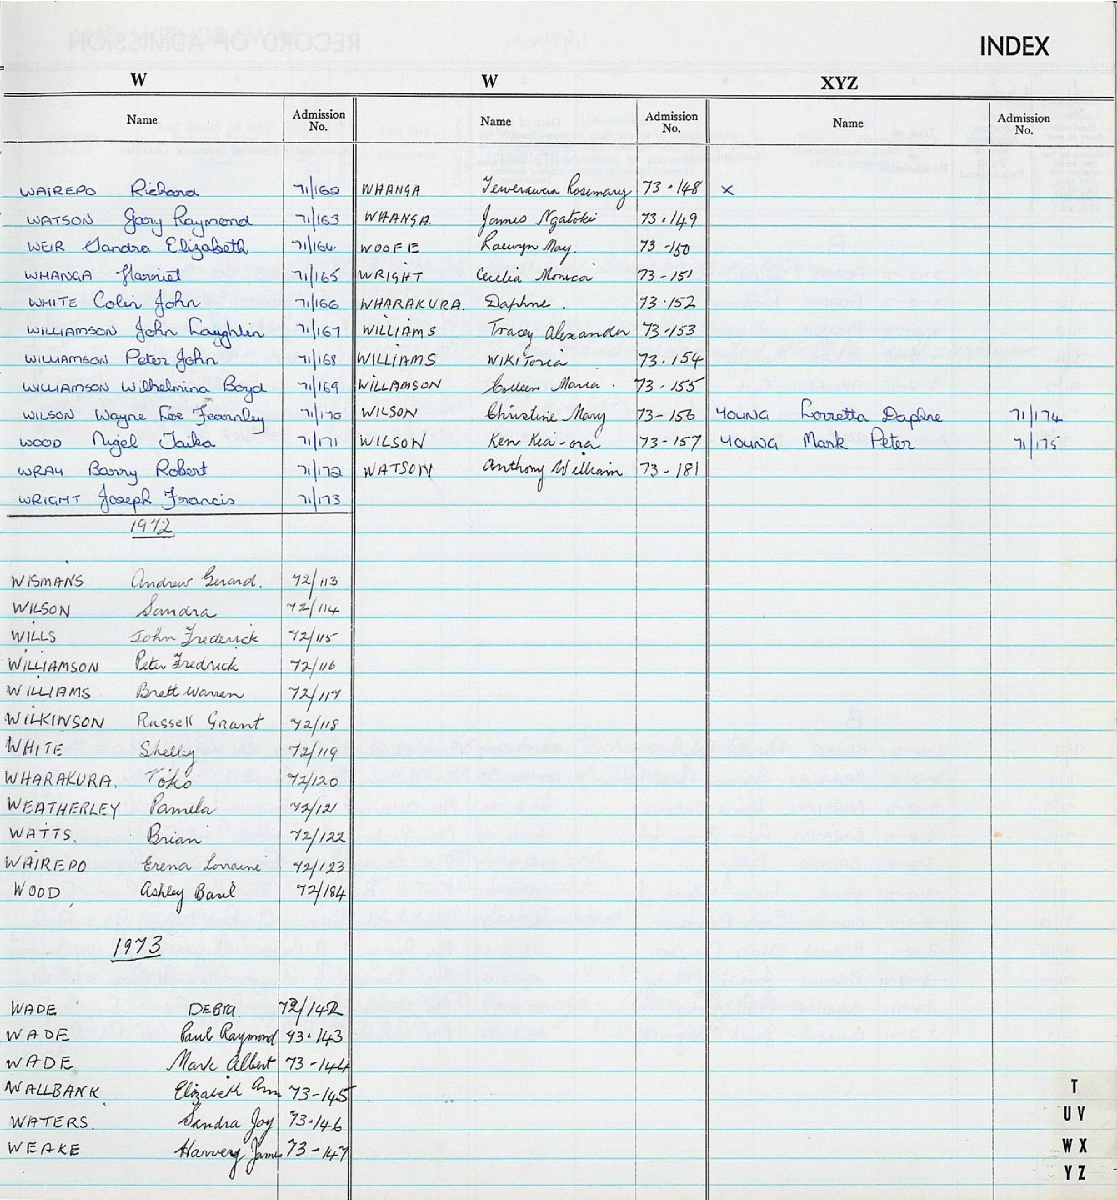 INDEX
W
Name Admission No.
WAIREPO Richard 71/162
WATSON Gary Raymond 71/163
WEIR Sandra Elizabeth 71/164
WHANGA Harriet 71/165
WHITE Colin John 71/166
WILLIAMSON John Laughlin 71/167
WILLIAMSON Peter John 71/168
WILLIAMSON Wilhelmina Boyd 71/169
WILSON Wayne Lee Fearnley 71/170
WOOD Nigel Taika 71/171
WRAY Barry Robert 71/172
WRIGHT Joseph Francis 71/173
1972
WISMANS Andrew Gerard. 72/113
WILSON Sandra 72/114
WILLS John Frederick 72/115
WILLIAMSON Peter Fredrick 72/116
WILLIAMS Brett Warren 72/117
WILKINSON Russell Grant 72/118
WHITE Shelly 72/119
WHARAKURA. Toko 72/120
WEATHERLEY Pamela 72/121
WATTS. Brian 72/122
WAIREPO Erena Lorraine 72/123
WOOD Ashley Basil 72/184
1973
WADE DEBRA 73/142
WADE Paul Raymond 73·143
WADE Mark Albert 73-144
WALLBANK Elizabeth Ann 73-145
WATERS. Sandra Joy 73-146
WEAKE Harvey James 73-147
W
Name Admission No.
WHANGA Rosemary 73·148
WHANGA James Ngatoki 73·149
WOOFE Raewyn May. 73-150
WRIGHT Cecilia Monica 73-151
WHARAKURA. Daphne. 73·152
WILLIAMS Tracey Alexander 73-153
WILLIAMS WIKITORIA 73.154
WILLAMSON Colleen Maria. 73-155
WILSON Christine Mary 73-156
WILSON Ken Kia-ora 73-157
WATSON Anthony William 73-181
XYZ
Name Admission No.
x
YOUNG Lorretta Daphne 71/174
YOUNG Mark Peter 71/175
T
U V
W X
Y Z